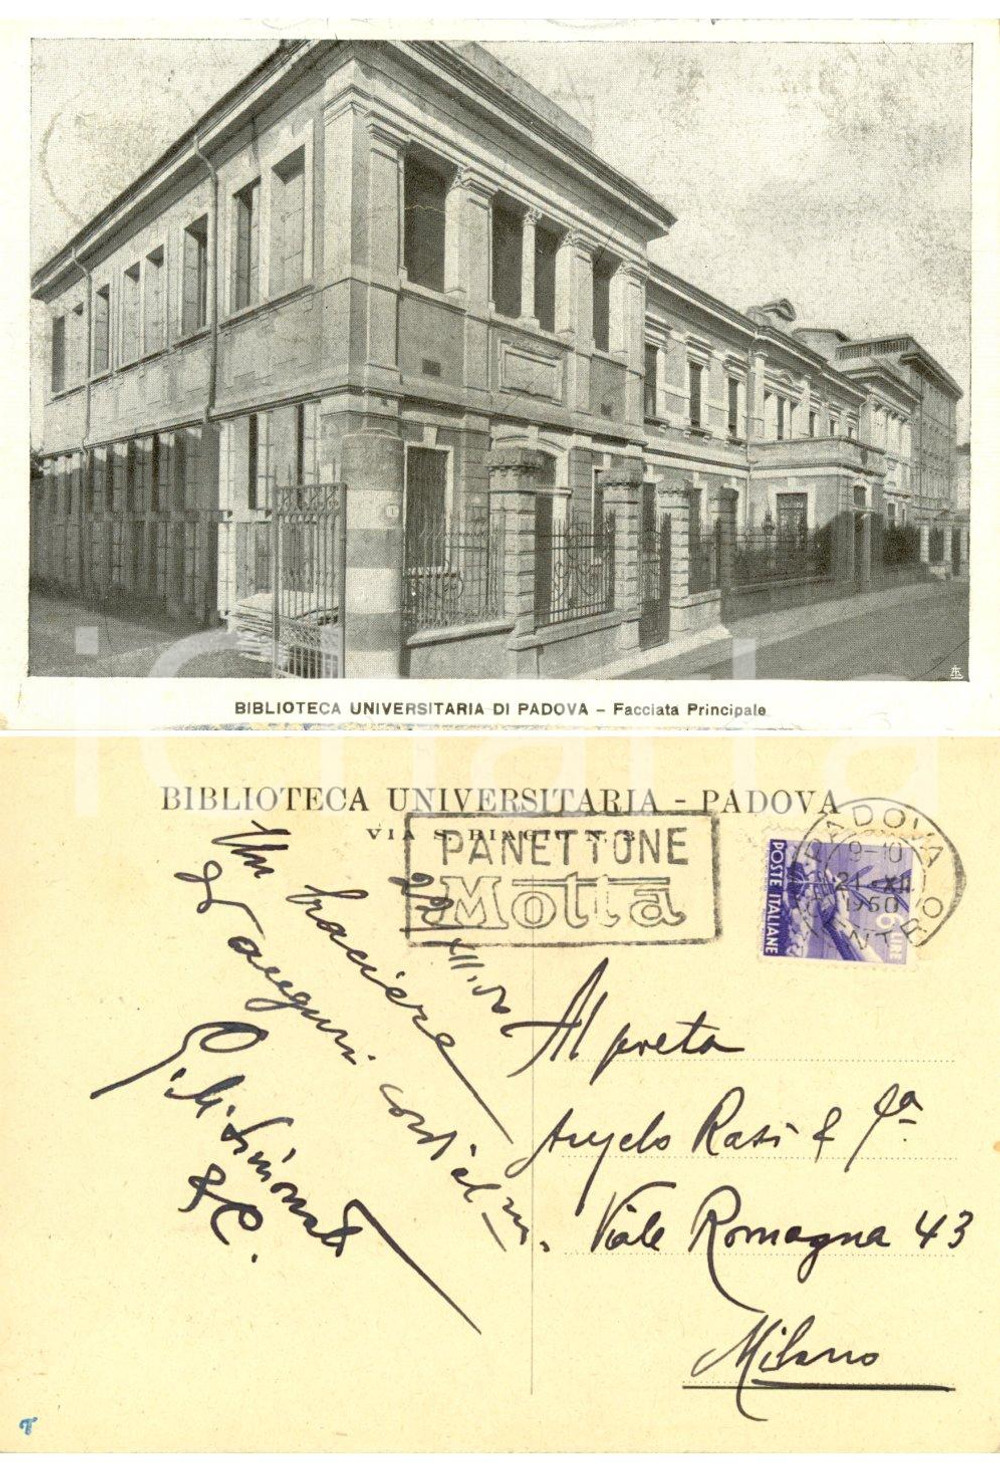 BIBLIOTECA UNIVERSITARIA DI PADOVA – Facciata Principale
BIBLIOTECA UNIVERSITARIA - PADOVA
VIA S. BIAGIO N. 3
PANETTONE
Motta
PADOVA
9-10
21 XII
1950
CENTRO
POSTE ITALIANE
6 LIRE
Un
bracciere
di auguri cordiali
XII.50
Simonato
& C.
Al
Angelo Rasi & F.a
Viale Romagna 43
Milano
icharta